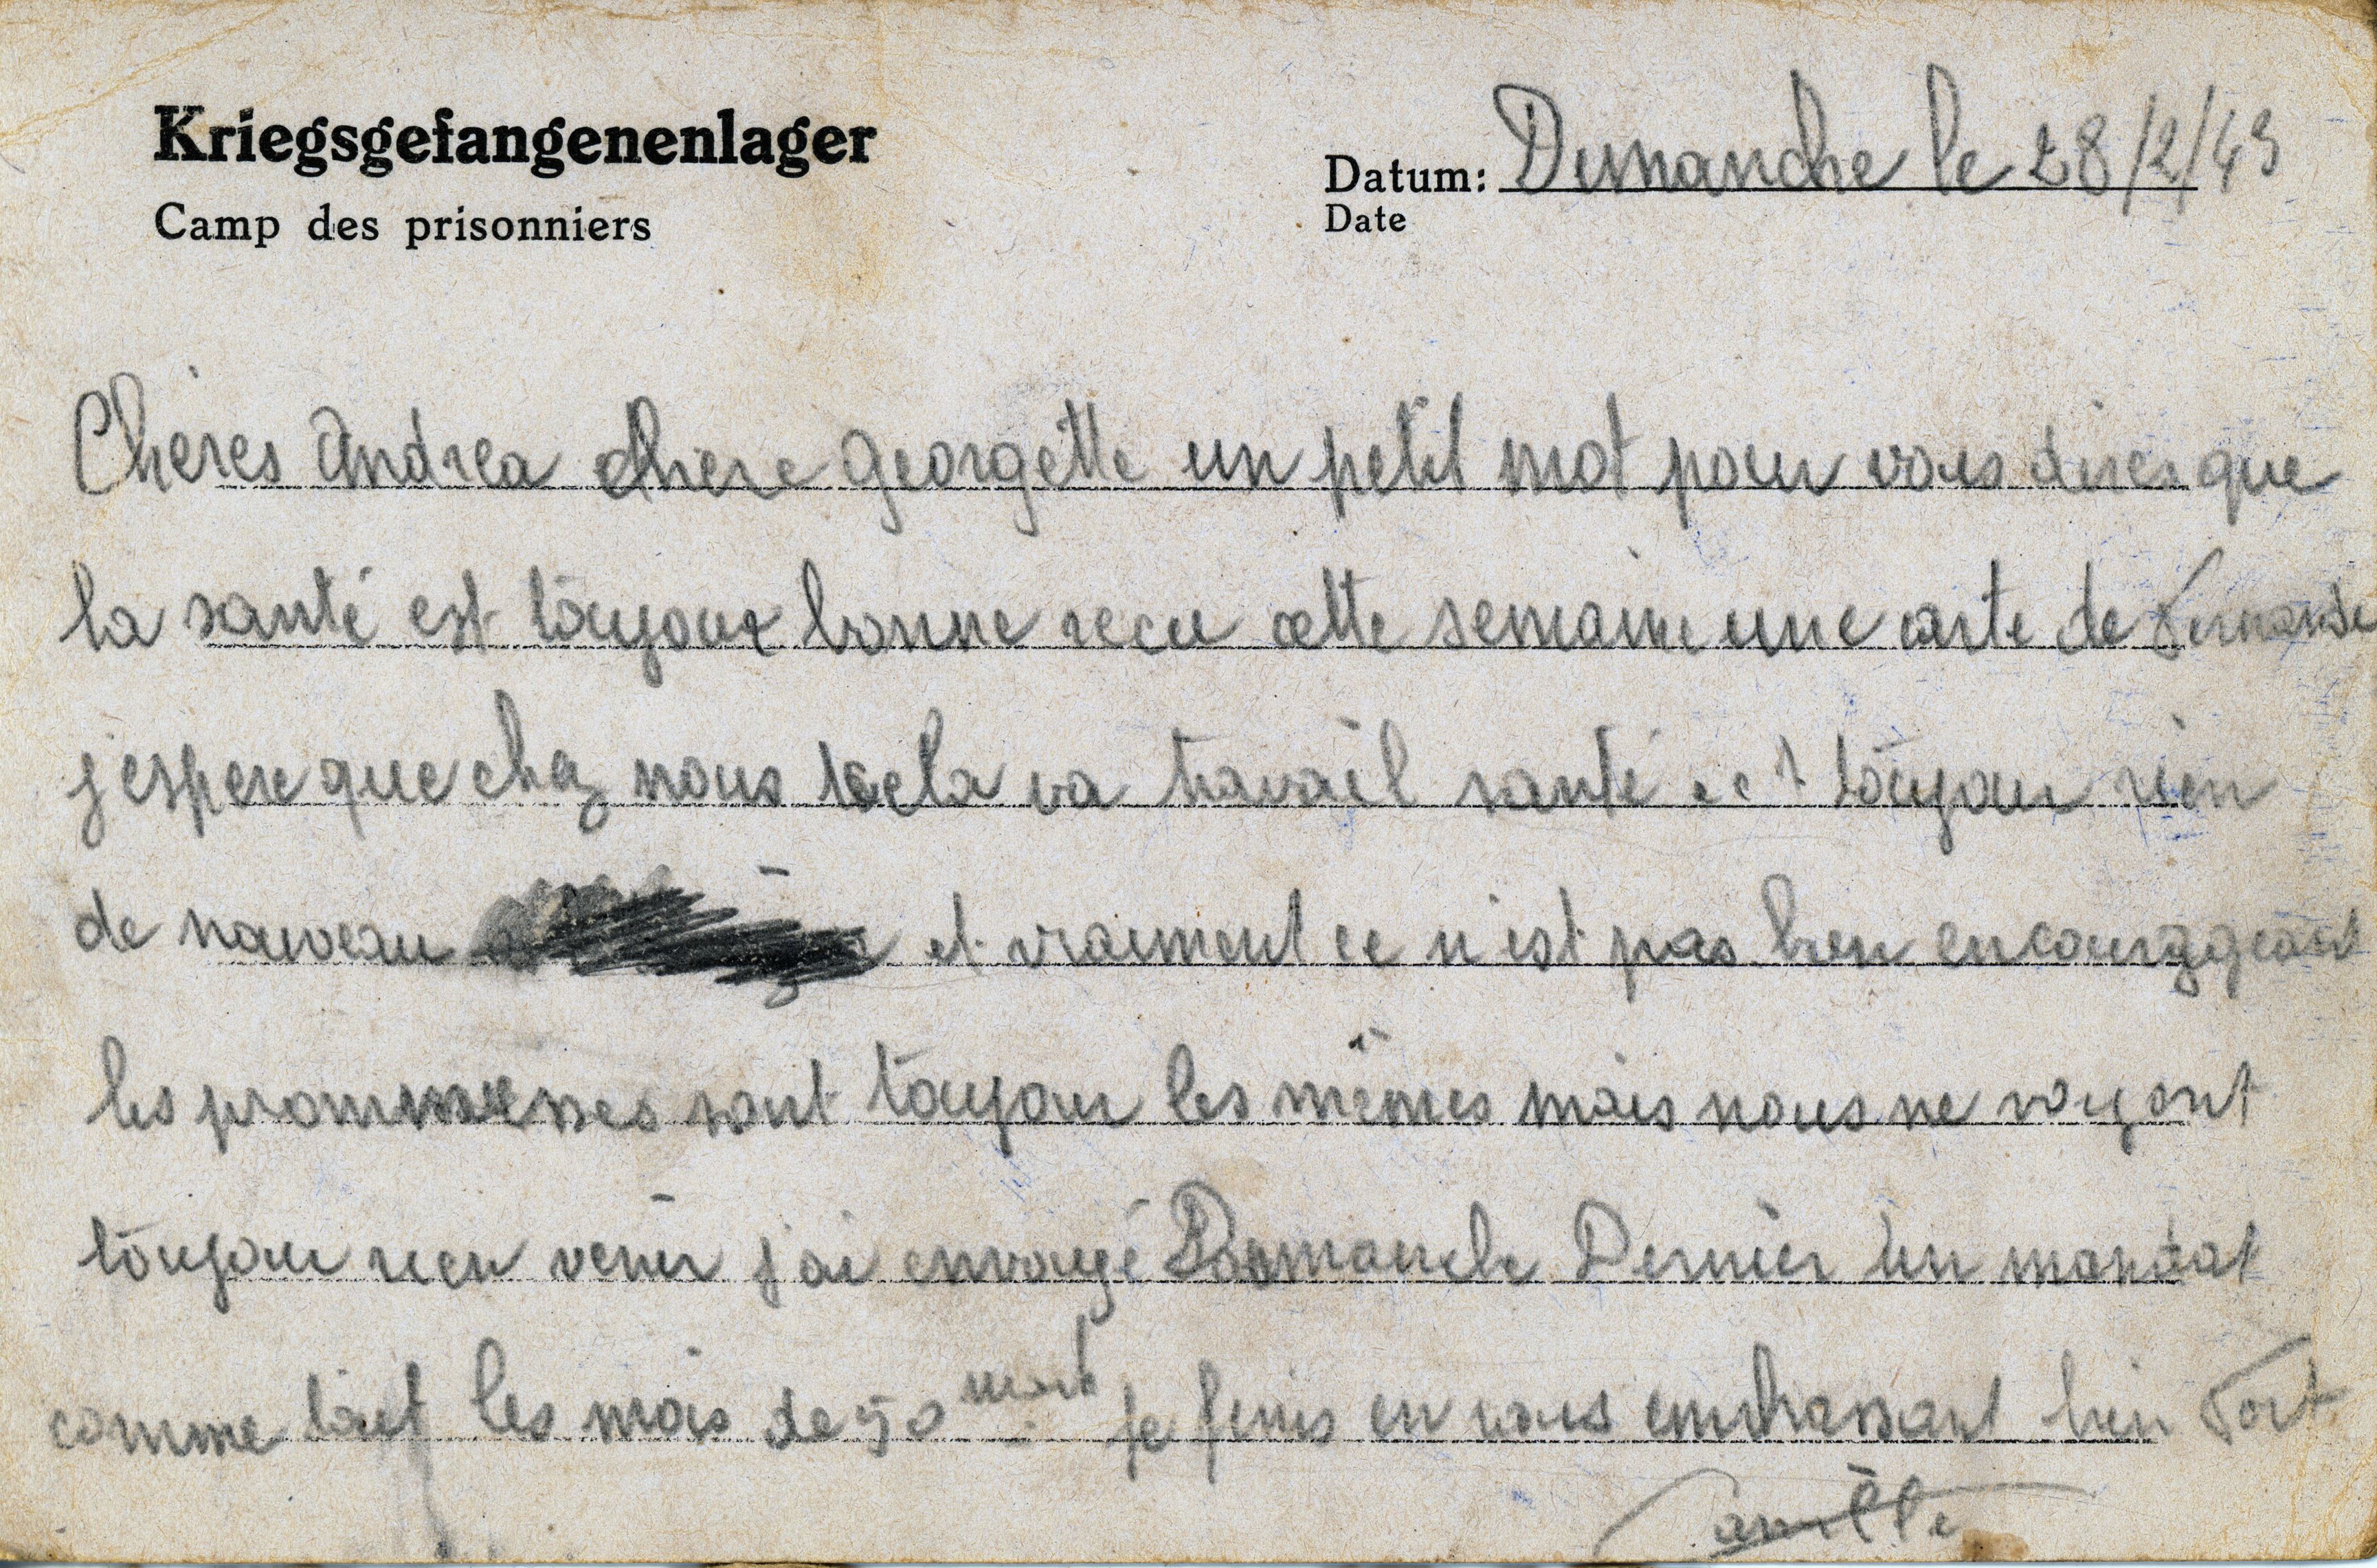 Kriegsgefangenenlager
Camp des prisonniers
Datum: Dimanche le 28/2/43
Date
Cheres Andrea chere georgette un petit mot pour vous direr que
la santé est toujour bonne recu cette semaine une carte de Fernande
j'espere que chez nous cela va travail santé ec ? toujour rien
de nouveau et vraiment ce n'est pas bien encourageant
les promesses sont toujour les mêmes mais nous ne voyont
toujour rien venir j'ai envoyé Dimanche Dernier un mandat
comme tout les mois de 50 mark je finis en vous embrassant bien Fort
Camille